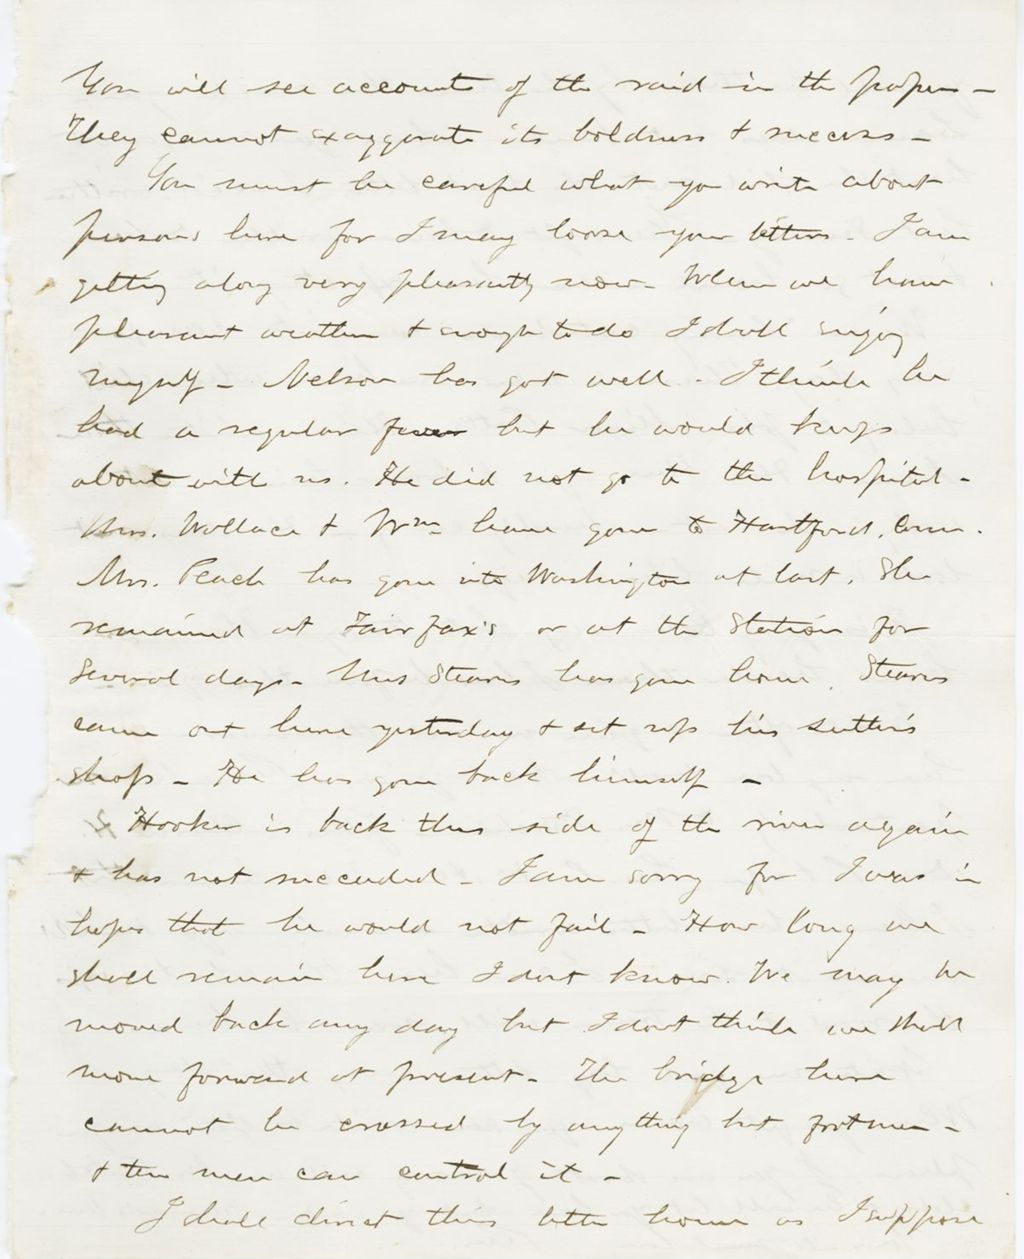 You will see accounts of the raid in the papers –
They cannot exaggerate its boldness & success –
You must be careful what you write about
persons here for I may loose your letters – I am
getting along very pleasantly now – When we have
pleasant weather & enough to do I shall enjoy
myself – Nelson has got well – I think he
had a regular fever but he would keep
about with us. He did not go to the hospital –
Mrs. Wallace & Wm have gone to Hartford, Conn.
Mrs. Peach has gone into Washington at last. She
remained at Fairfax's or at the Station for
several days – Mrs Stearns has gone home. Stearns
came out here yesterday & set up his sutler's
shop – He has gone back himself –
Hooker is back this side of the river again
& has not succeeded – I am sorry for I was in
hopes that he would not fail – How long we
shall remain here I dont know. We may be
moved back any day but I dont think we shall
move forward at present – The bridge here
cannot be crossed by anything but footmen –
& ten men can control it –
I shall direct this letter home as I suppose